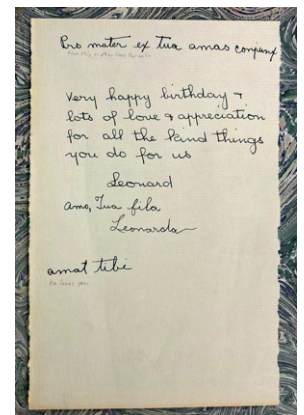 Pro mater ex tua amas conjunx
Very happy birthday &
lots of love & appreciation
for all the kind things
you do for us
Leonard
Amo, Tua fila
Leonarda
amat tibi